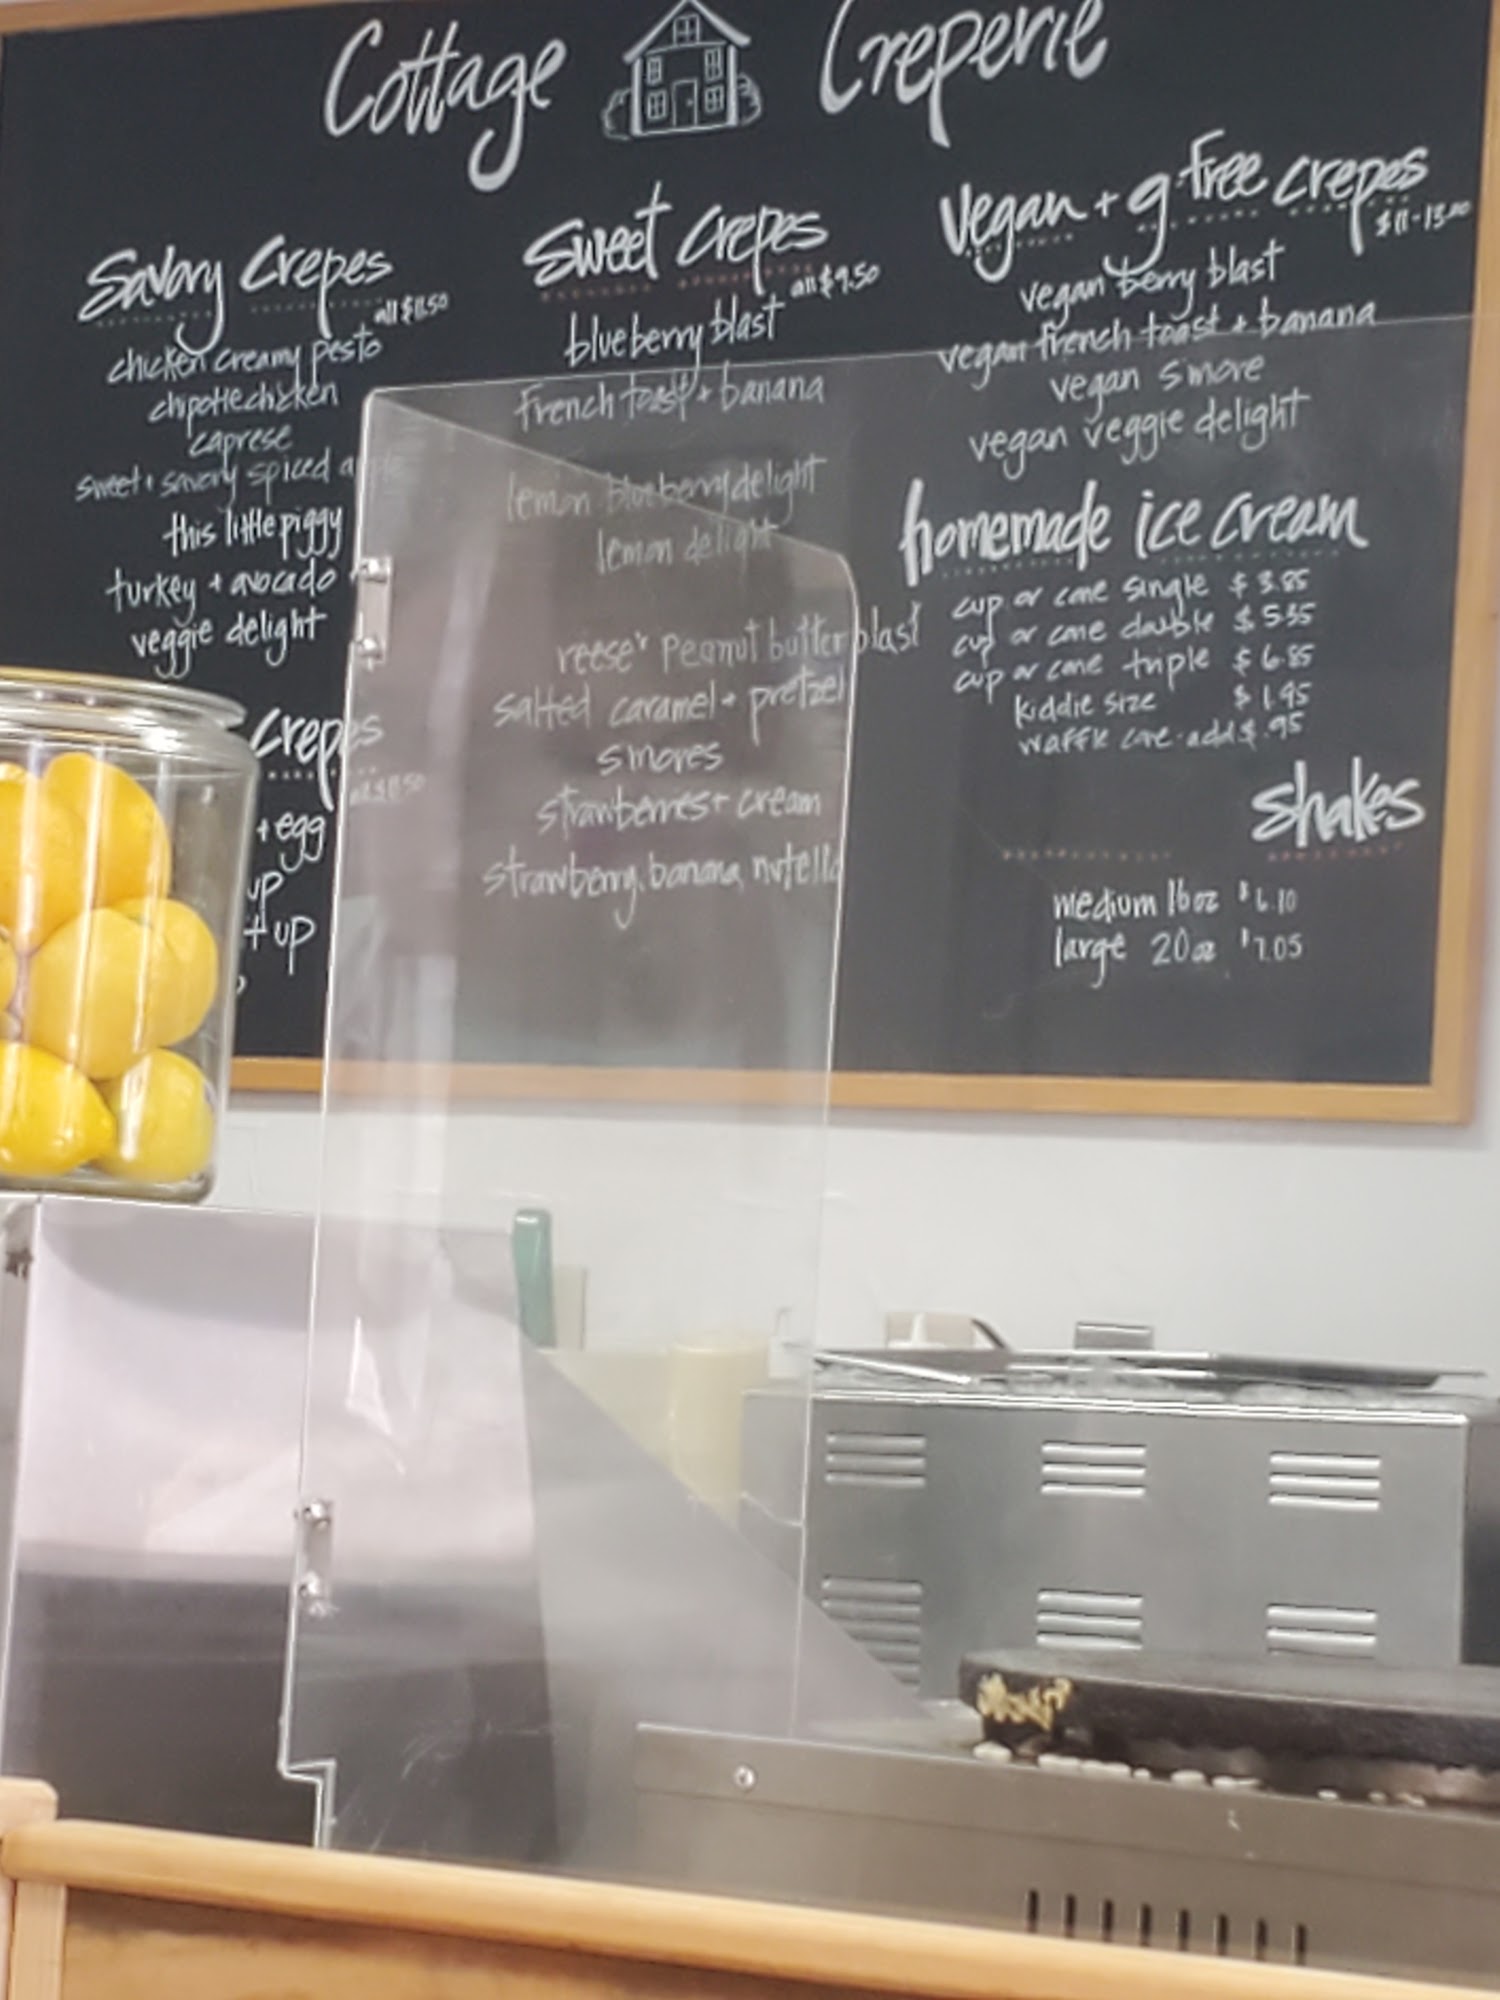 Cottage Creperie
Savory Crepes
all $11.50
chicken creamy pesto
chipotle chicken
caprese
sweet + savory spiced
this little piggy
turkey + avocado
veggie delight
crepes
+ egg
up
up
sweet crepes
all $9.50
blueberry blast
french toast + banana
lemon blueberry delight
lemon delight
reese's peanut butter blast
salted caramel + pretzel
smores
strawberries + cream
strawberry, banana, nutella
Vegan + g free crepes
$11-13.00
vegan berry blast
vegan french toast + banana
vegan s'more
vegan veggie delight
homemade ice cream
cup or cone single $3.85
cup or cone double $5.35
cup or cone triple $6.85
kiddie size $1.95
waffle cone add $.95
shakes
medium 16 oz $6.10
large 20 oz $7.05